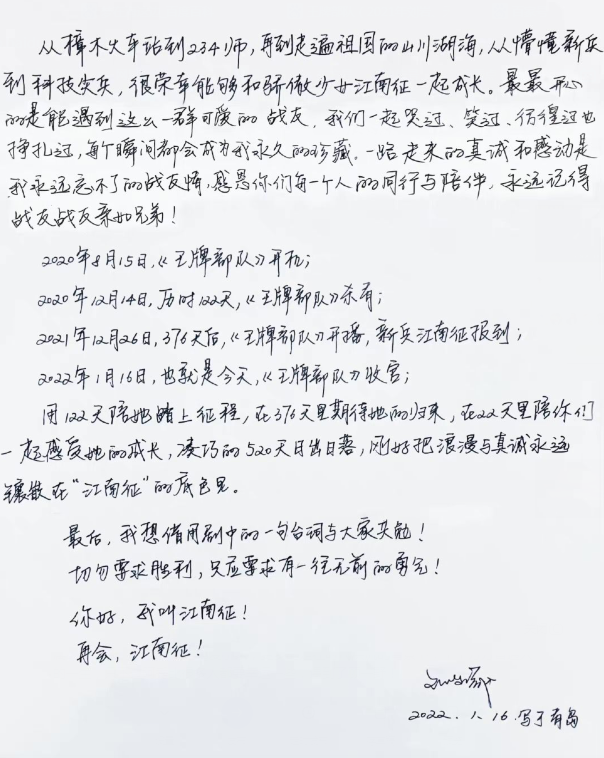 从樟木火车站到234师，再到走遍祖国的山川湖海，从懵懂新兵
到科技尖兵，很荣幸能够和骄傲少女江南征一起成长。最最开心
的是能遇到这么一群可爱的战友，我们一起哭过、笑过、彷徨过也
挣扎过，每个瞬间都会成为我永久的珍藏，一路走来的真诚和感动是
我永远忘不了的战友情，感恩你们每一个人的同行与陪伴，永远记得
战友战友亲如兄弟！
2020年8月15日，《王牌部队》开机；
2020年12月14日，历时122天，《王牌部队》杀青；
2021年12月26日，376天后，《王牌部队》开播，新兵江南征报到；
2022年1月16日，也就是今天，《王牌部队》收官；
用122天陪她踏上征程，在376天里期待她的归来，在22天里陪你们
一起感受她的成长，凑巧的520天日出日落，刚好把浪漫与真诚永远
镶嵌在“江南征”的底色里。
最后，我想借用剧中的一句台词与大家共勉！
切勿要求胜利，只应要求有一往无前的勇气！
你好，我叫江南征！
再会，江南征！
2022.1.16.写于青岛